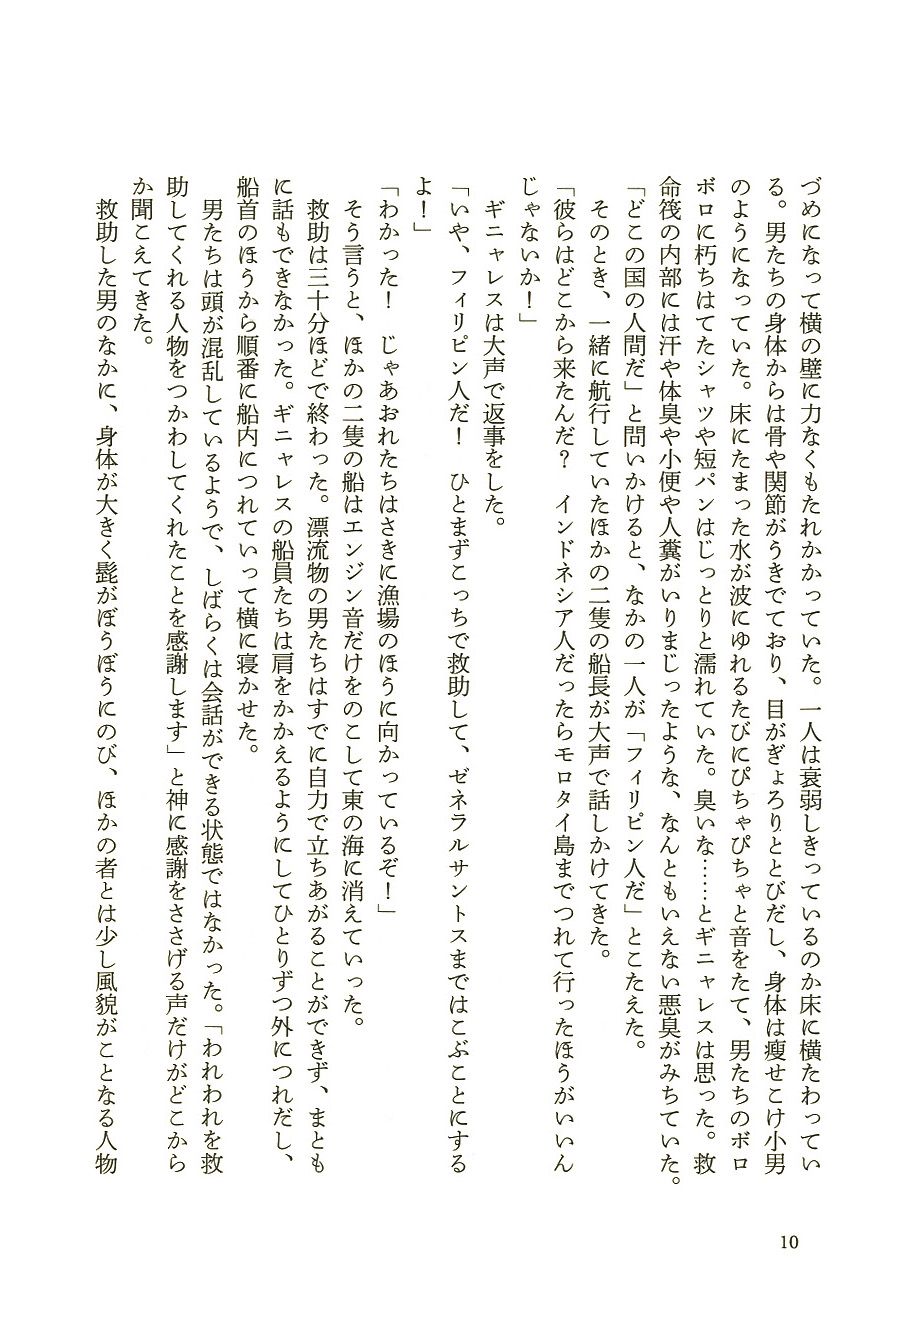 づめになって横の壁に力なくもたれかかっていた。一人は衰弱しきっているのか床に横たわってい
る。男たちの身体からは骨や関節がうきでており、目がぎょろりととびだし、身体は瘦せこけ小男
のようになっていた。床にたまった水が波にゆれるたびにぴちゃぴちゃと音をたて、男たちのボロ
ボロに朽ちはてたシャツや短パンはじっとりと濡れていた。臭いな……とギニャレスは思った。救
命筏の内部には汗や体臭や小便や人糞がいりまじったような、なんともいえない悪臭がみちていた。
「どこの国の人間だ」と問いかけると、なかの一人が「フィリピン人だ」とこたえた。
そのとき、一緒に航行していたほかの二隻の船長が大声で話しかけてきた。
「彼らはどこから来たんだ？　インドネシア人だったらモロタイ島までつれて行ったほうがいいん
じゃないか！」
ギニャレスは大声で返事をした。
「いや、フィリピン人だ！　ひとまずこっちで救助して、ゼネラルサントスまではこぶことにする
よ！」
「わかった！　じゃあおれたちはさきに漁場のほうに向かっているぞ！」
そう言うと、ほかの二隻の船はエンジン音だけをのこして東の海に消えていった。
救助は三十分ほどで終わった。漂流物の男たちはすでに自力で立ちあがることができず、まとも
に話もできなかった。ギニャレスの船員たちは肩をかかえるようにしてひとりずつ外につれだし、
船首のほうから順番に船内につれていって横に寝かせた。
男たちは頭が混乱しているようで、しばらくは会話ができる状態ではなかった。「われわれを救
助してくれる人物をつかわしてくれたことを感謝します」と神に感謝をささげる声だけがどこから
か聞こえてきた。
救助した男のなかに、身体が大きく髭がぼうぼうにのび、ほかの者とは少し風貌がことなる人物
10